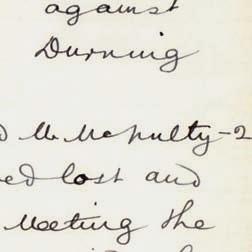 against
Durning
M. McNulty-2
ed lost and
Meeting the